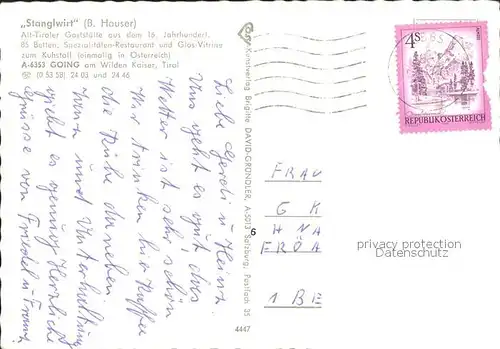 „Stanglwirt" (B. Hauser)
Alt-Tiroler Gaststätte aus dem 16. Jahrhundert,
85 Betten, Spezialitäten-Restaurant und Glas-Vitrine
zum Kuhstall (einmalig in Österreich)
A-6353 GOING am Wilden Kaiser, Tirol
☏ (0 53 58) 24 03 und 24 46
Liebe Gerdi u Heinz.
Uns geht es gut das
Wetter ist sehr schön
Wir trinken hier Kaffee
die Kühe daneben.
und Unterhaltung
gibt es genung Herzliche
Grüsse von Friedel u Franz
Kunstverlag Brigitte DAVID-GRÜNDLER, A-5013 Salzburg, Postfach 35
4447
6
4S
REPUBLIK ÖSTERREICH
FRAU
G K
H N A
FRÖA
1 BE
privacy protection
Datenschutz